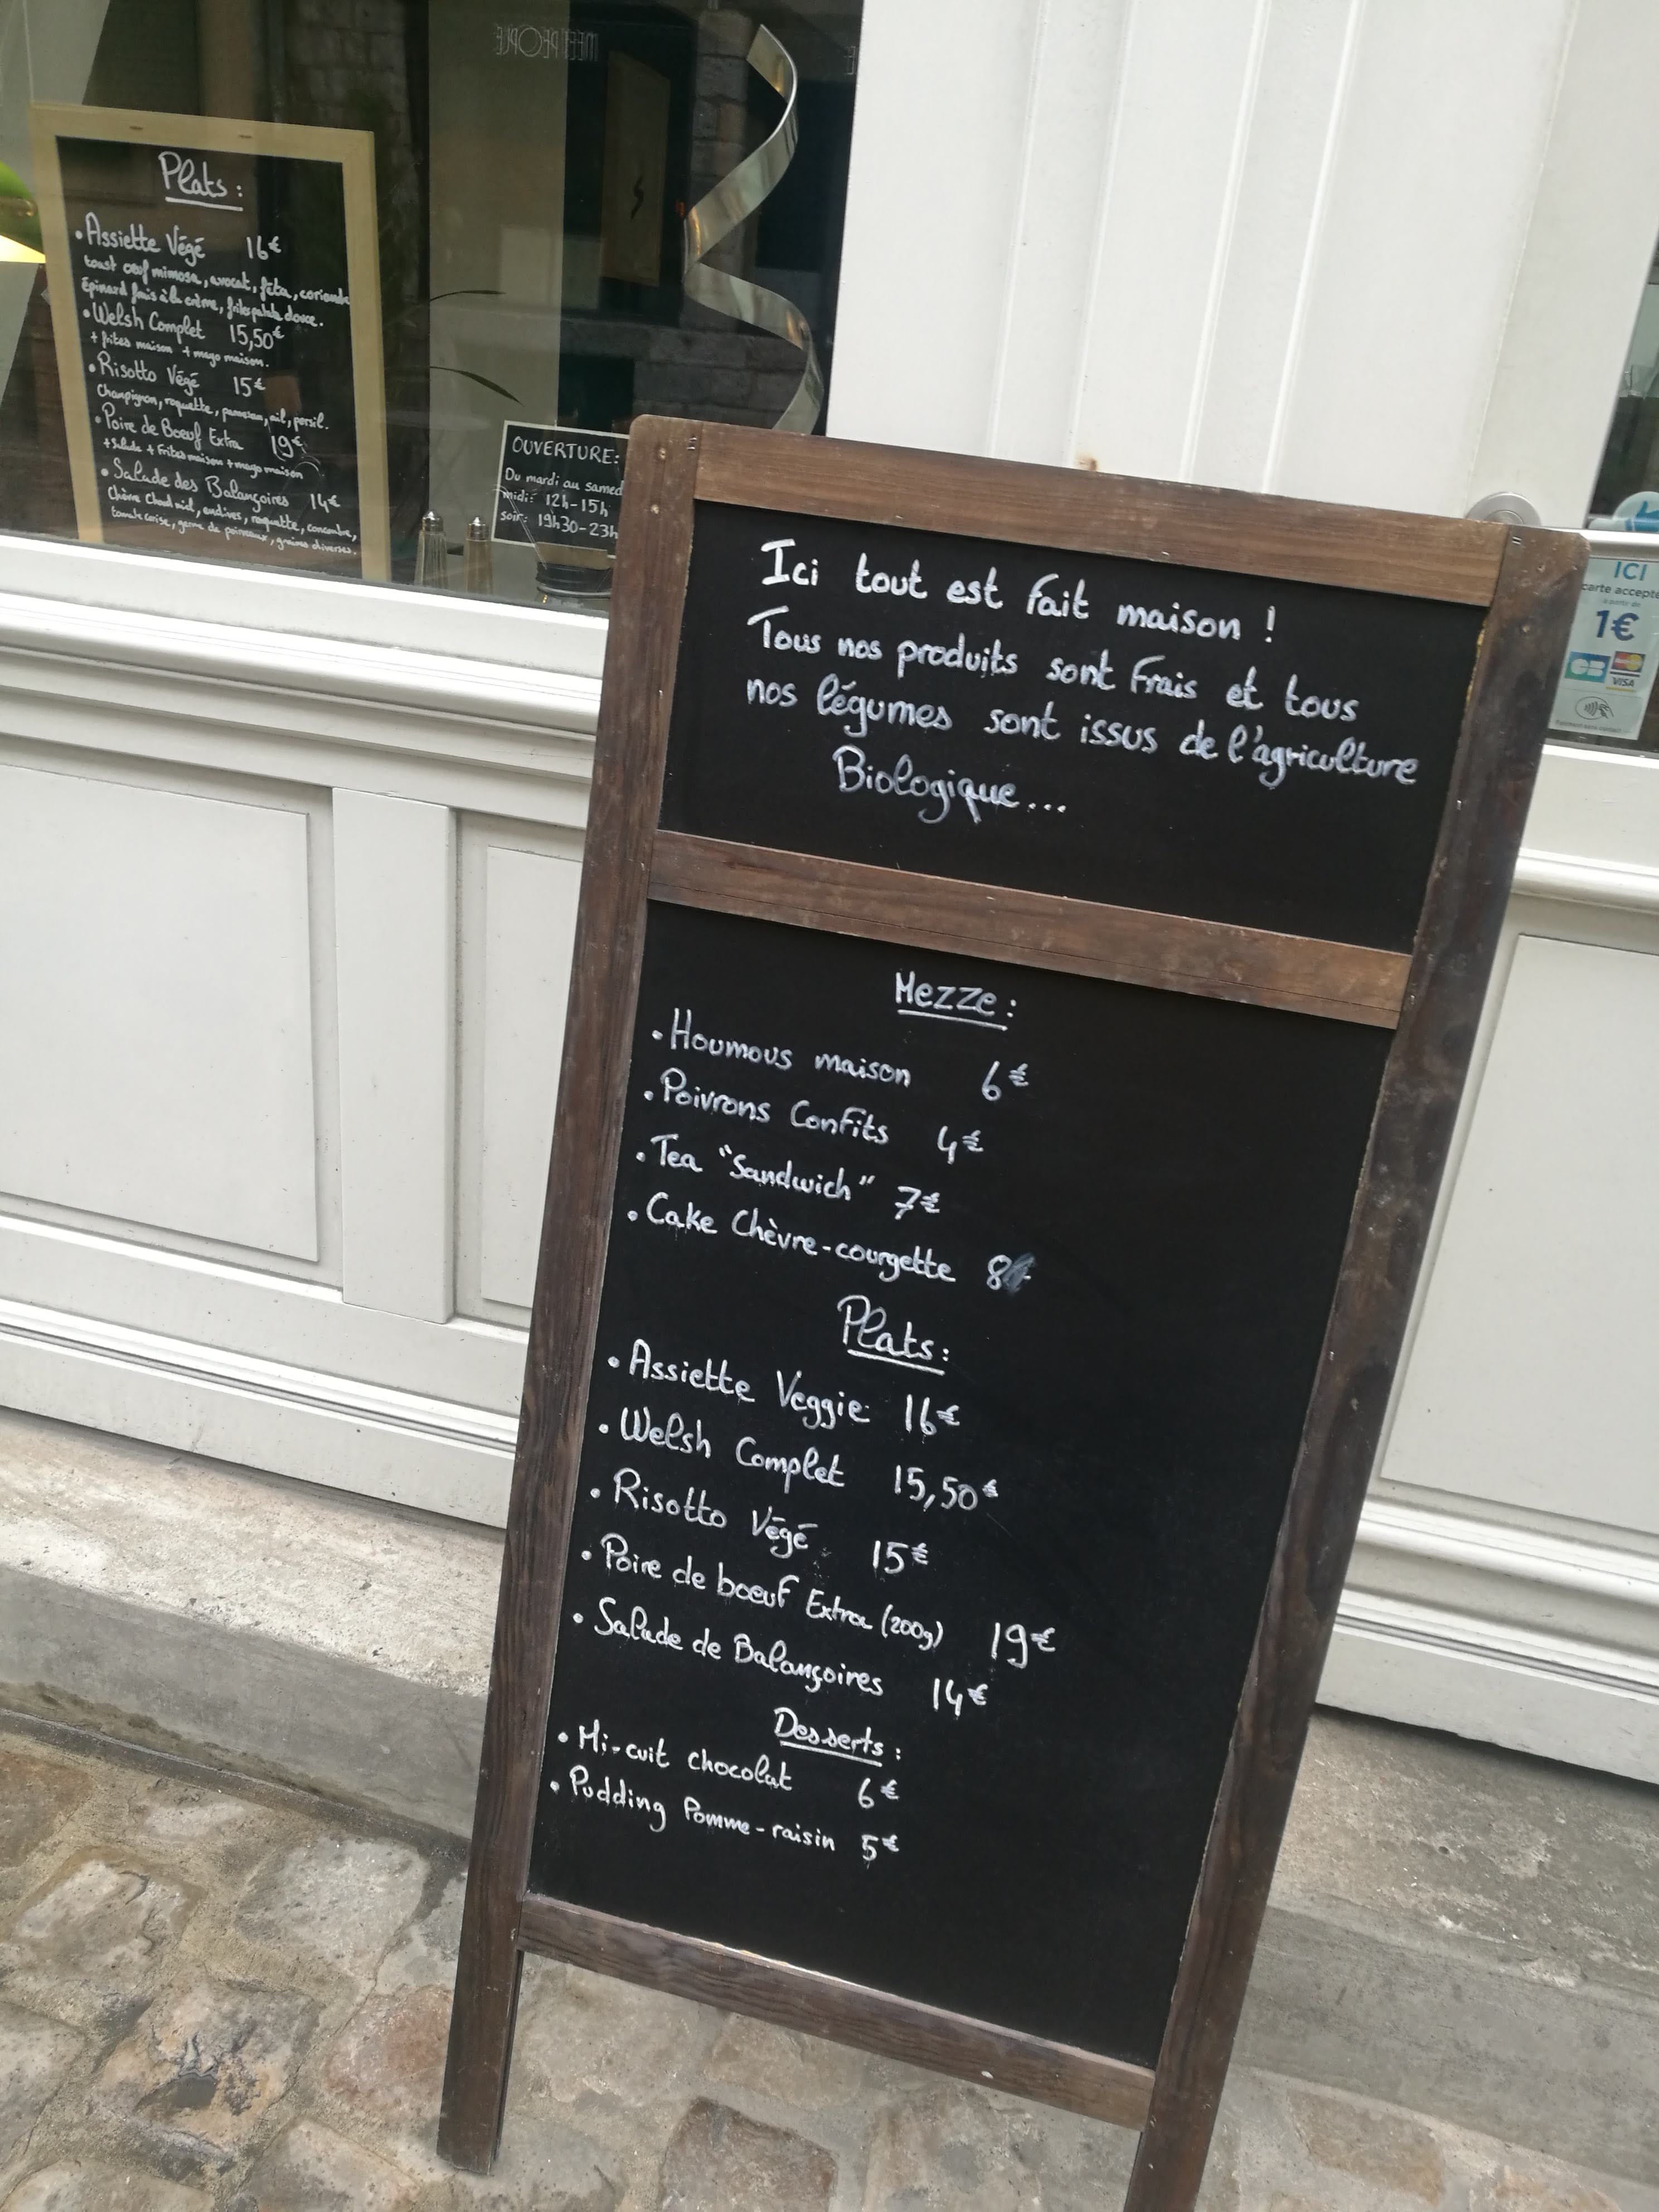 MEET PEOPLE
Plats :
• Assiette Végé 16€
toast œuf mimosa, avocat, féta, coriande
Épinard frais à la crème, frites patate douce.
• Welsh Complet 15,50€
+ frites maison + mayo maison.
• Risotto Végé 15€
Champignon, roquette, parmesan, ail, persil.
• Poire de Boeuf Extra 19€
+ Salade + Frites maison + mayo maison
• Salade des Balançoires 14€
Chèvre Chaud miel, endives, roquette, concombre,
tomate cerise, germe de poireaux, graines diverses.
OUVERTURE:
Du mardi au samed
midi: 12h-15h
soir: 19h30-23h
Ici tout est fait maison !
Tous nos produits sont frais et tous
nos légumes sont issus de l'agriculture
Biologique...
Mezze :
• Houmous maison 6€
• Poivrons Confits 4€
• Tea "Sandwich" 7€
• Cake Chèvre-courgette 8€
Plats :
• Assiette Veggie 16€
• Welsh Complet 15,50€
• Risotto Végé 15€
• Poire de boeuf Extra (200g) 19€
• Salade de Balançoires 14€
Desserts :
• Mi-cuit chocolat 6€
• Pudding Pomme-raisin 5€
ICI
carte accepté
à partir de
1€
CB
VISA